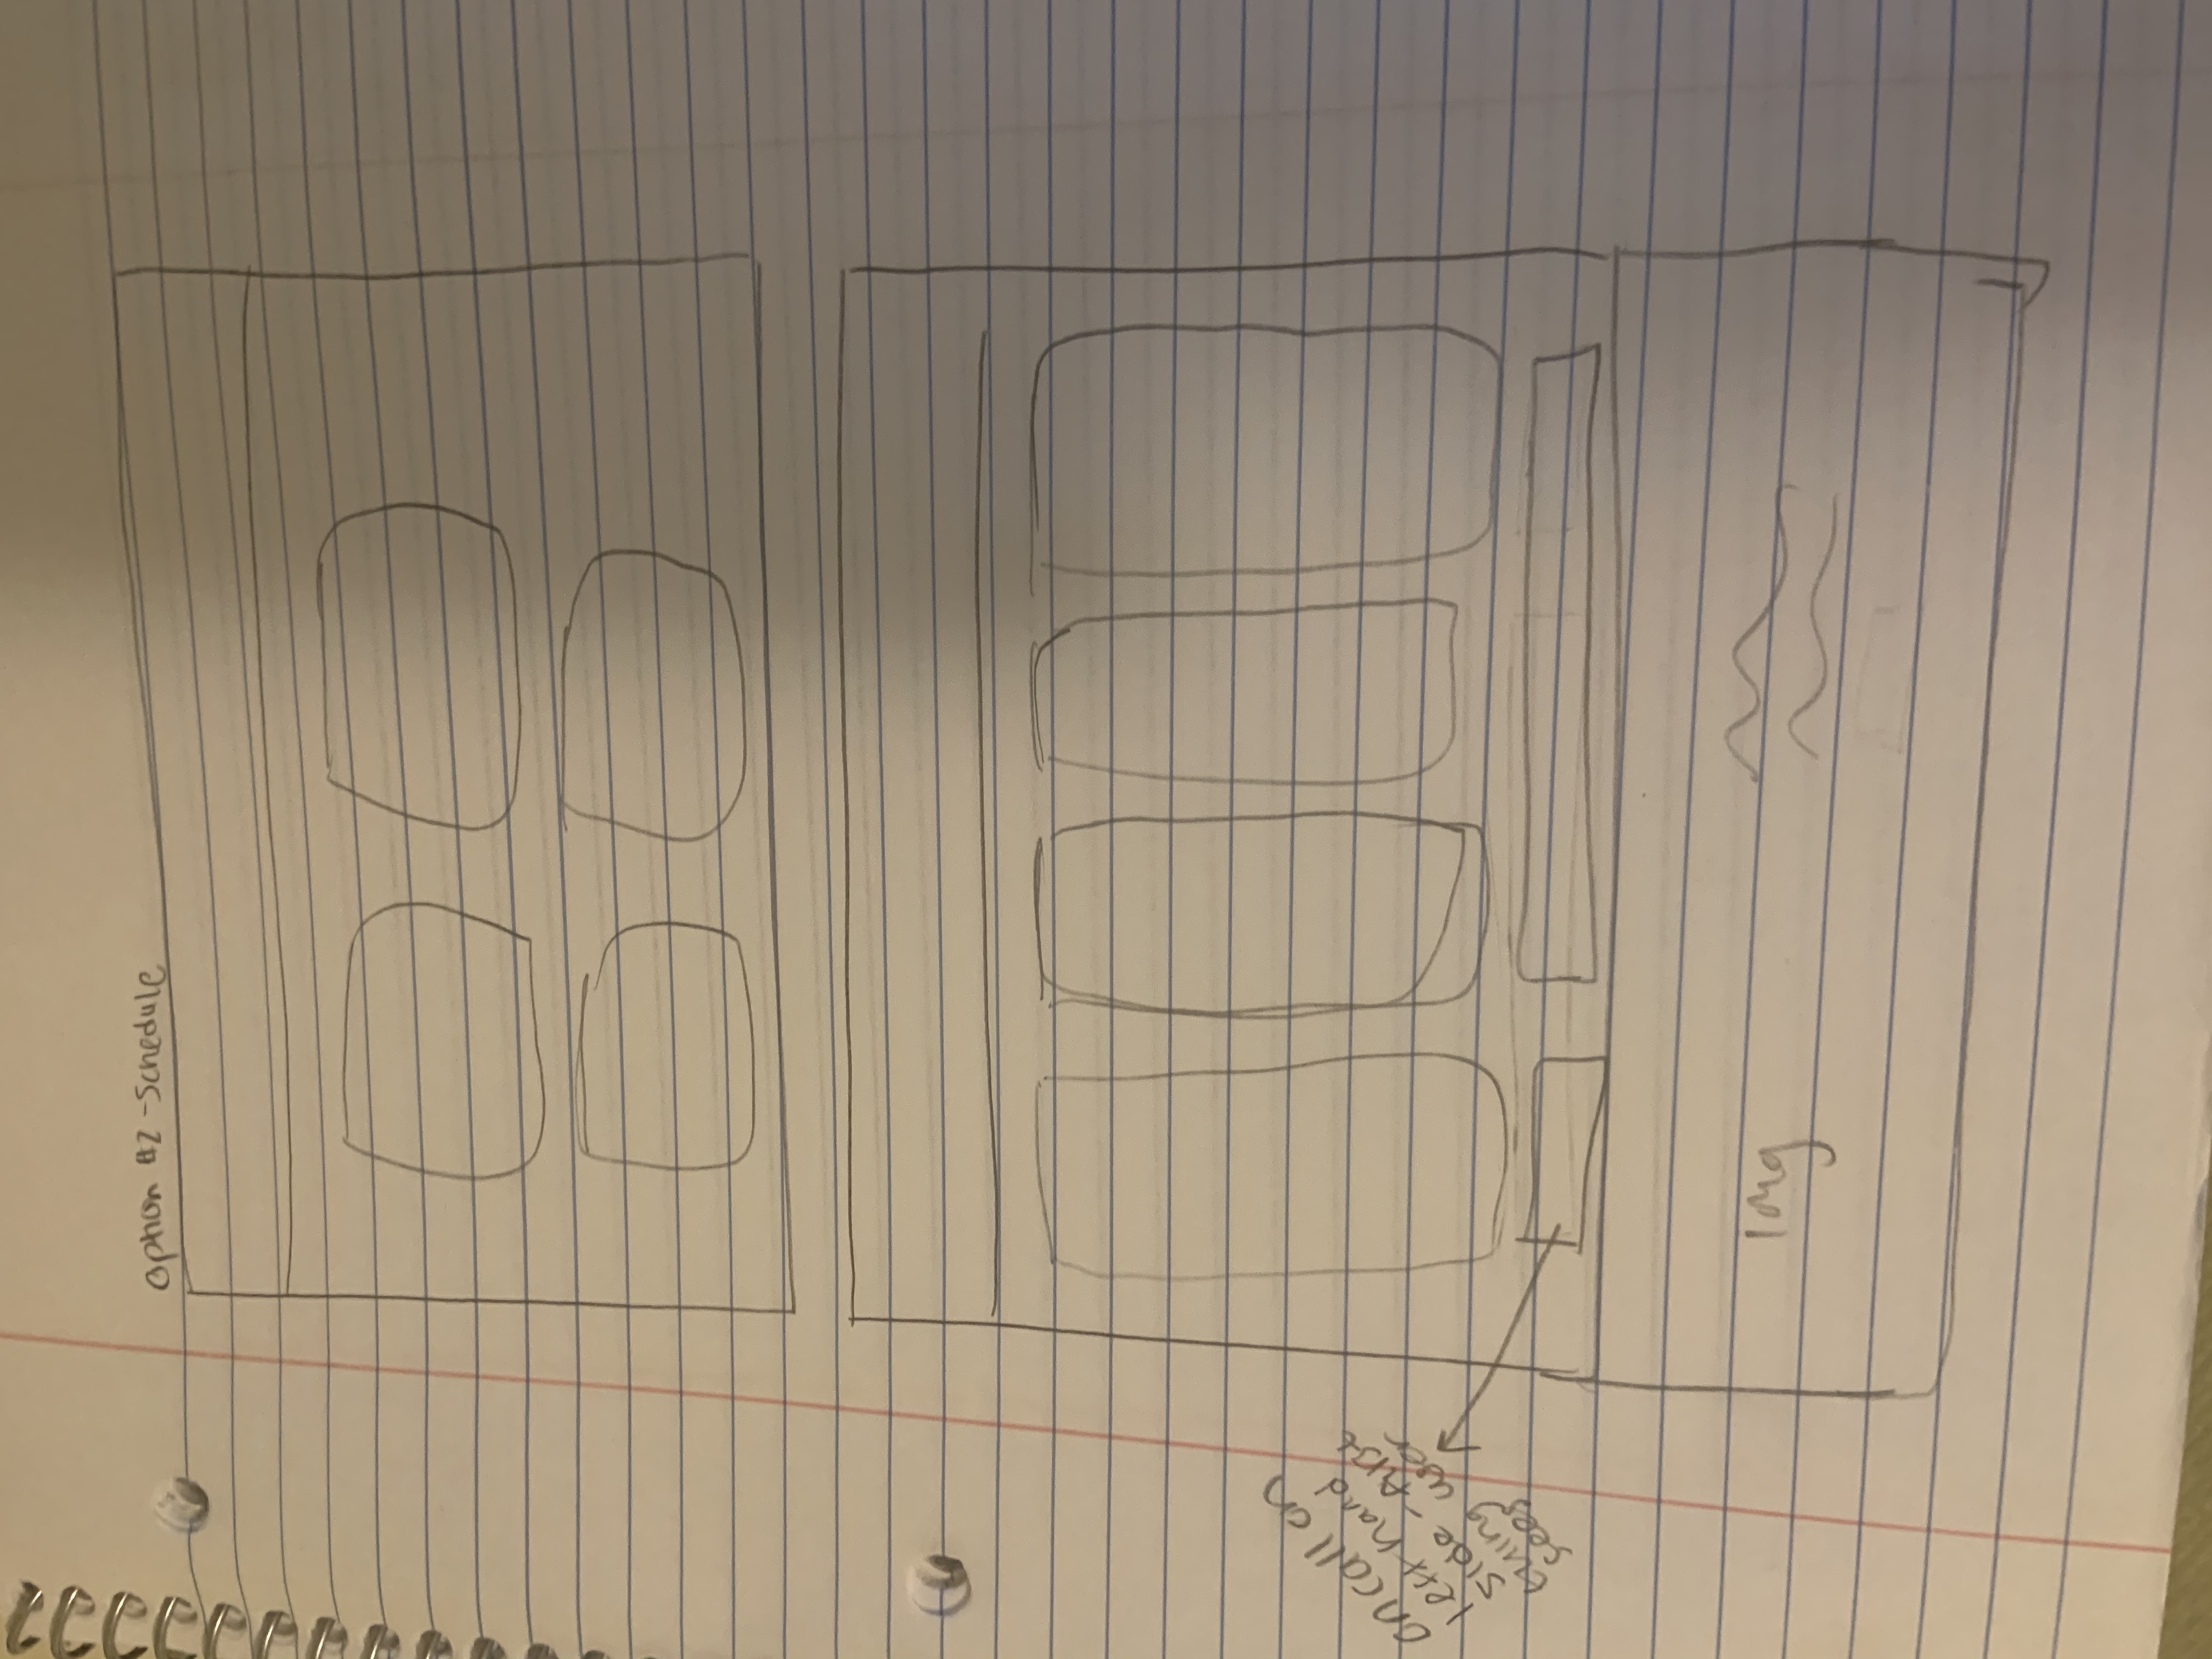 Option #2 - Schedule
on call on
left hand
side - first
thing user
sees
Img